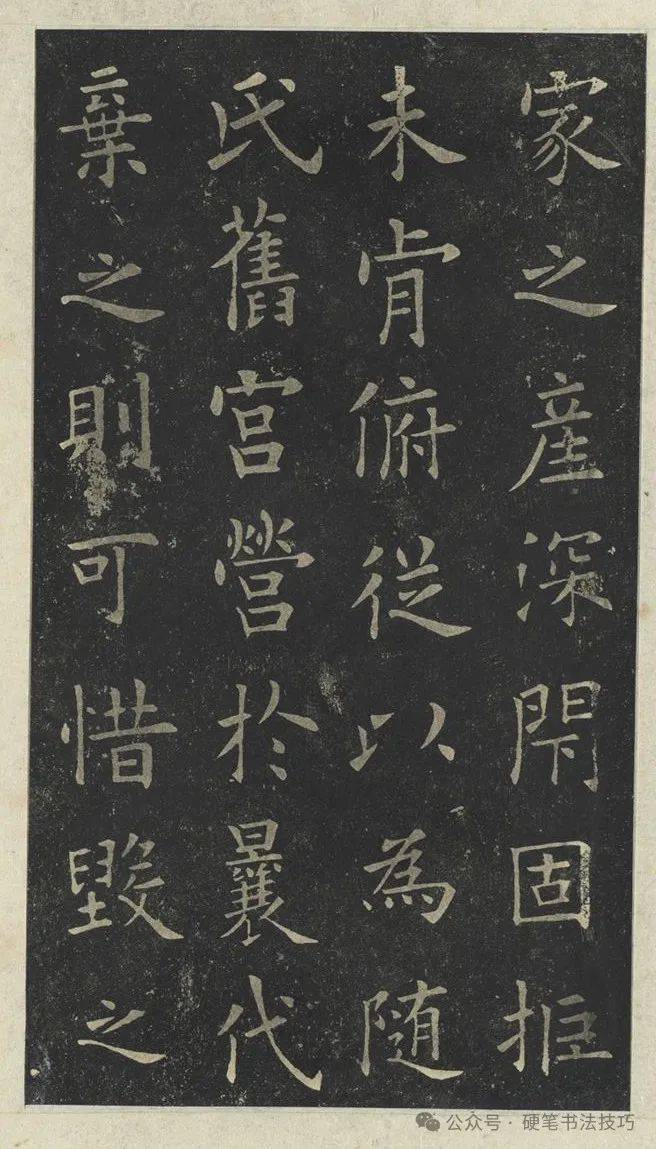 家之產深閇固拒
未肯俯從以為随
氏舊宮營於曩代
棄之則可惜毀之
公众号·硬笔书法技巧